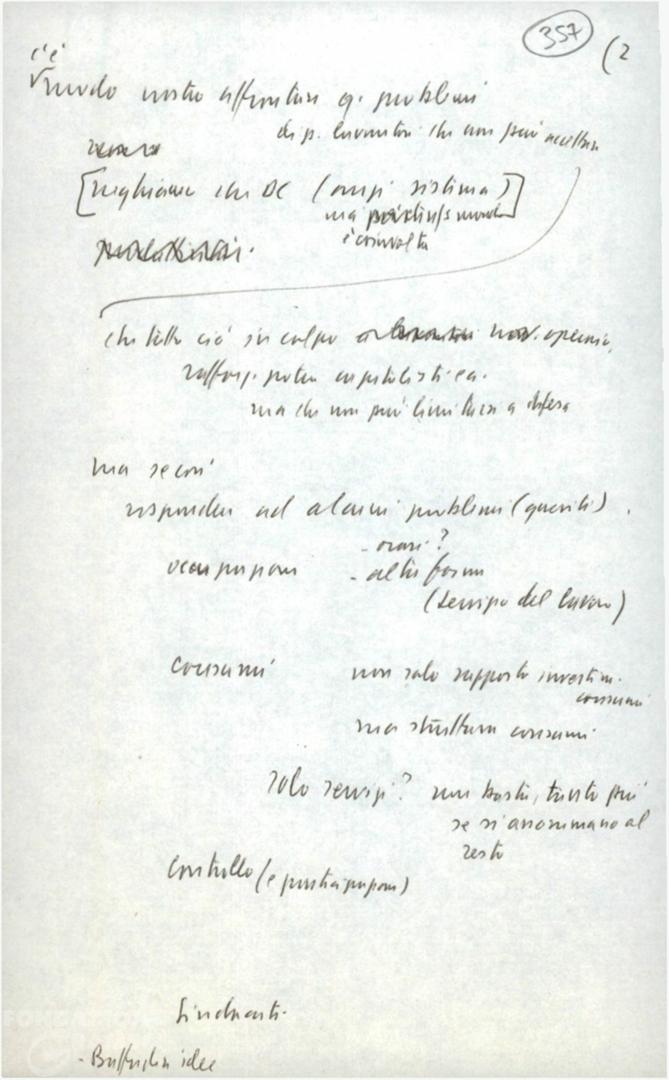 357 (2
c'è
modo nostro affrontare q. problemi
di p. lavoratori che non può accettare
[neghiamo che DC (ampi sistema)]
ma
è coinvolta
che tutto ciò sia colpo mov. operaio,
rafforz. potere capitalistica.
ma che non può limitarsi a difesa
ma se così
rispondere ad alcuni problemi (quesiti).
- orari?
occupazione - altre forme
(tempo del lavoro)
consumi non solo rapporto investim.
consumi
ma struttura consumi
solo servizi? non basta, tanto più
se si assommano al
resto
Controllo (e partecipazione)
Sindacati.
- Battaglia idee